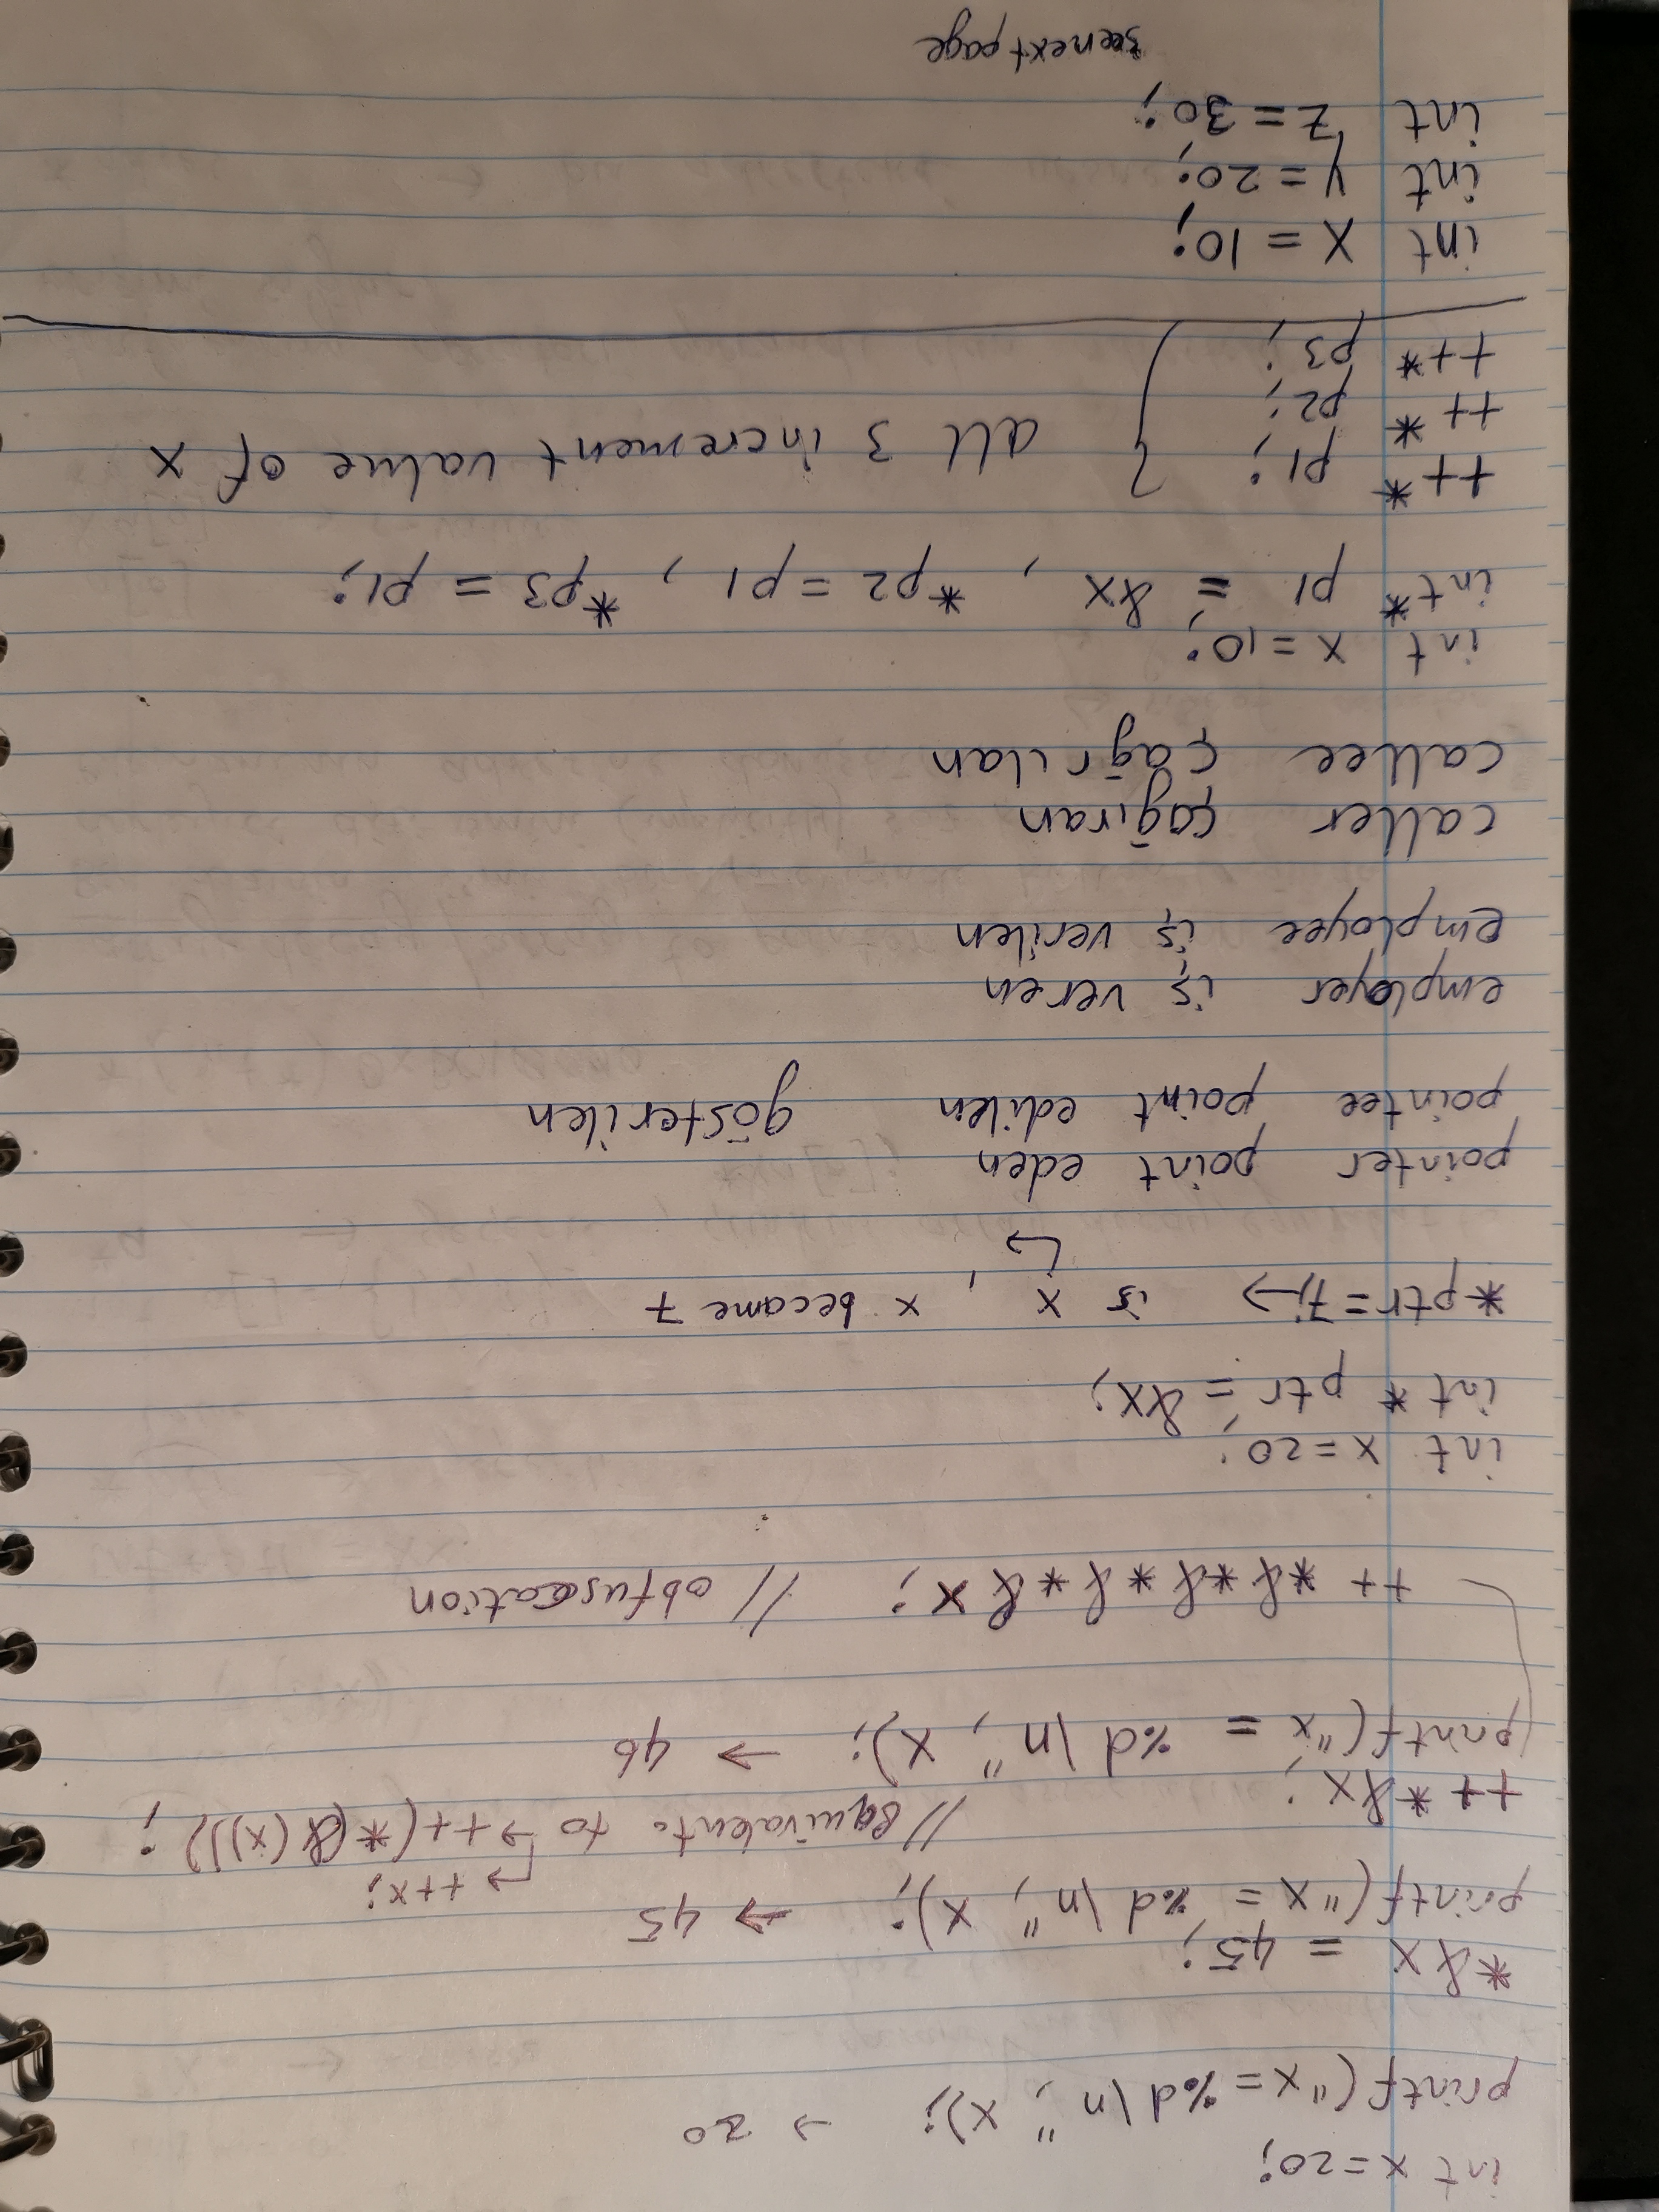 int x=20;
printf("x= %d \n", x); → 20
*&x = 45;
printf("x = %d \n", x); → 45
→ ++x;
++*&x; //equivalent. to → ++(*(&(x)));
printf("x = %d \n", x); → 46
++ *&*&*&*&x; // obfuscation
int x=20;
int* ptr = &x;
*ptr=7; → is x , x became 7
pointer point eden
pointee point edilen gösterilen
employer iş veren
employee iş verilen
caller çağıran
callee çağrılan
int x=10;
int* p1 = &x , *p2=p1 , *p3 = p1;
++* p1;
++* p2; } all 3 increment value of x
++* p3;
int x=10;
int y=20;
int z=30;
see next page